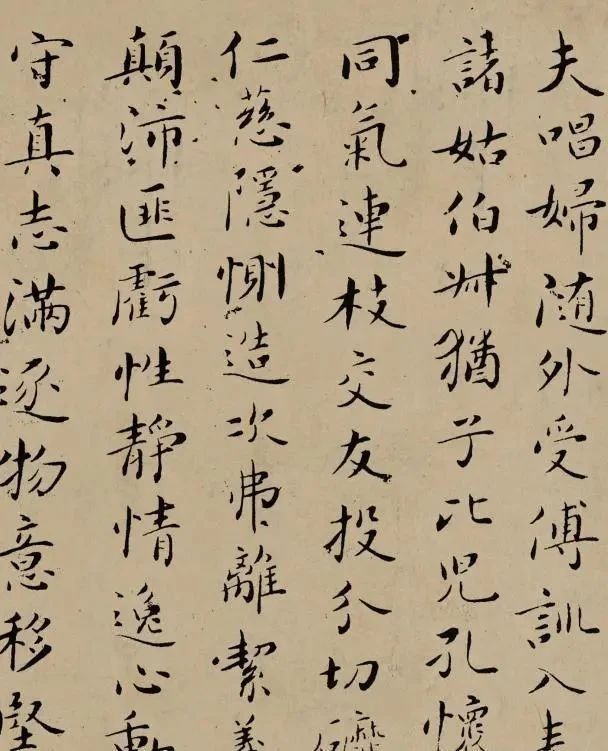 夫唱婦随外受傅訓入奉
諸姑伯叔猶子比児孔懷
同氣連枝交友投分切磨
仁慈隱惻造次弗離絜義
顛沛匪虧性靜情逸心動
守真志滿逐物意移堅